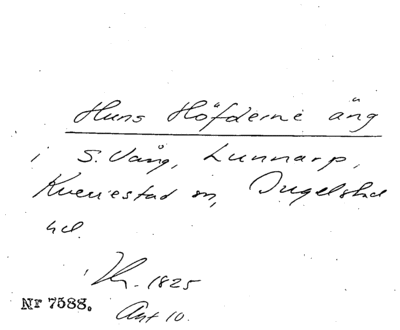 Huns Höfderne äng
i S. Vång, Lunnarp,
Kverrestad sn, Ingelstad
hd.
1825
Akt 10.
Nr 7588.